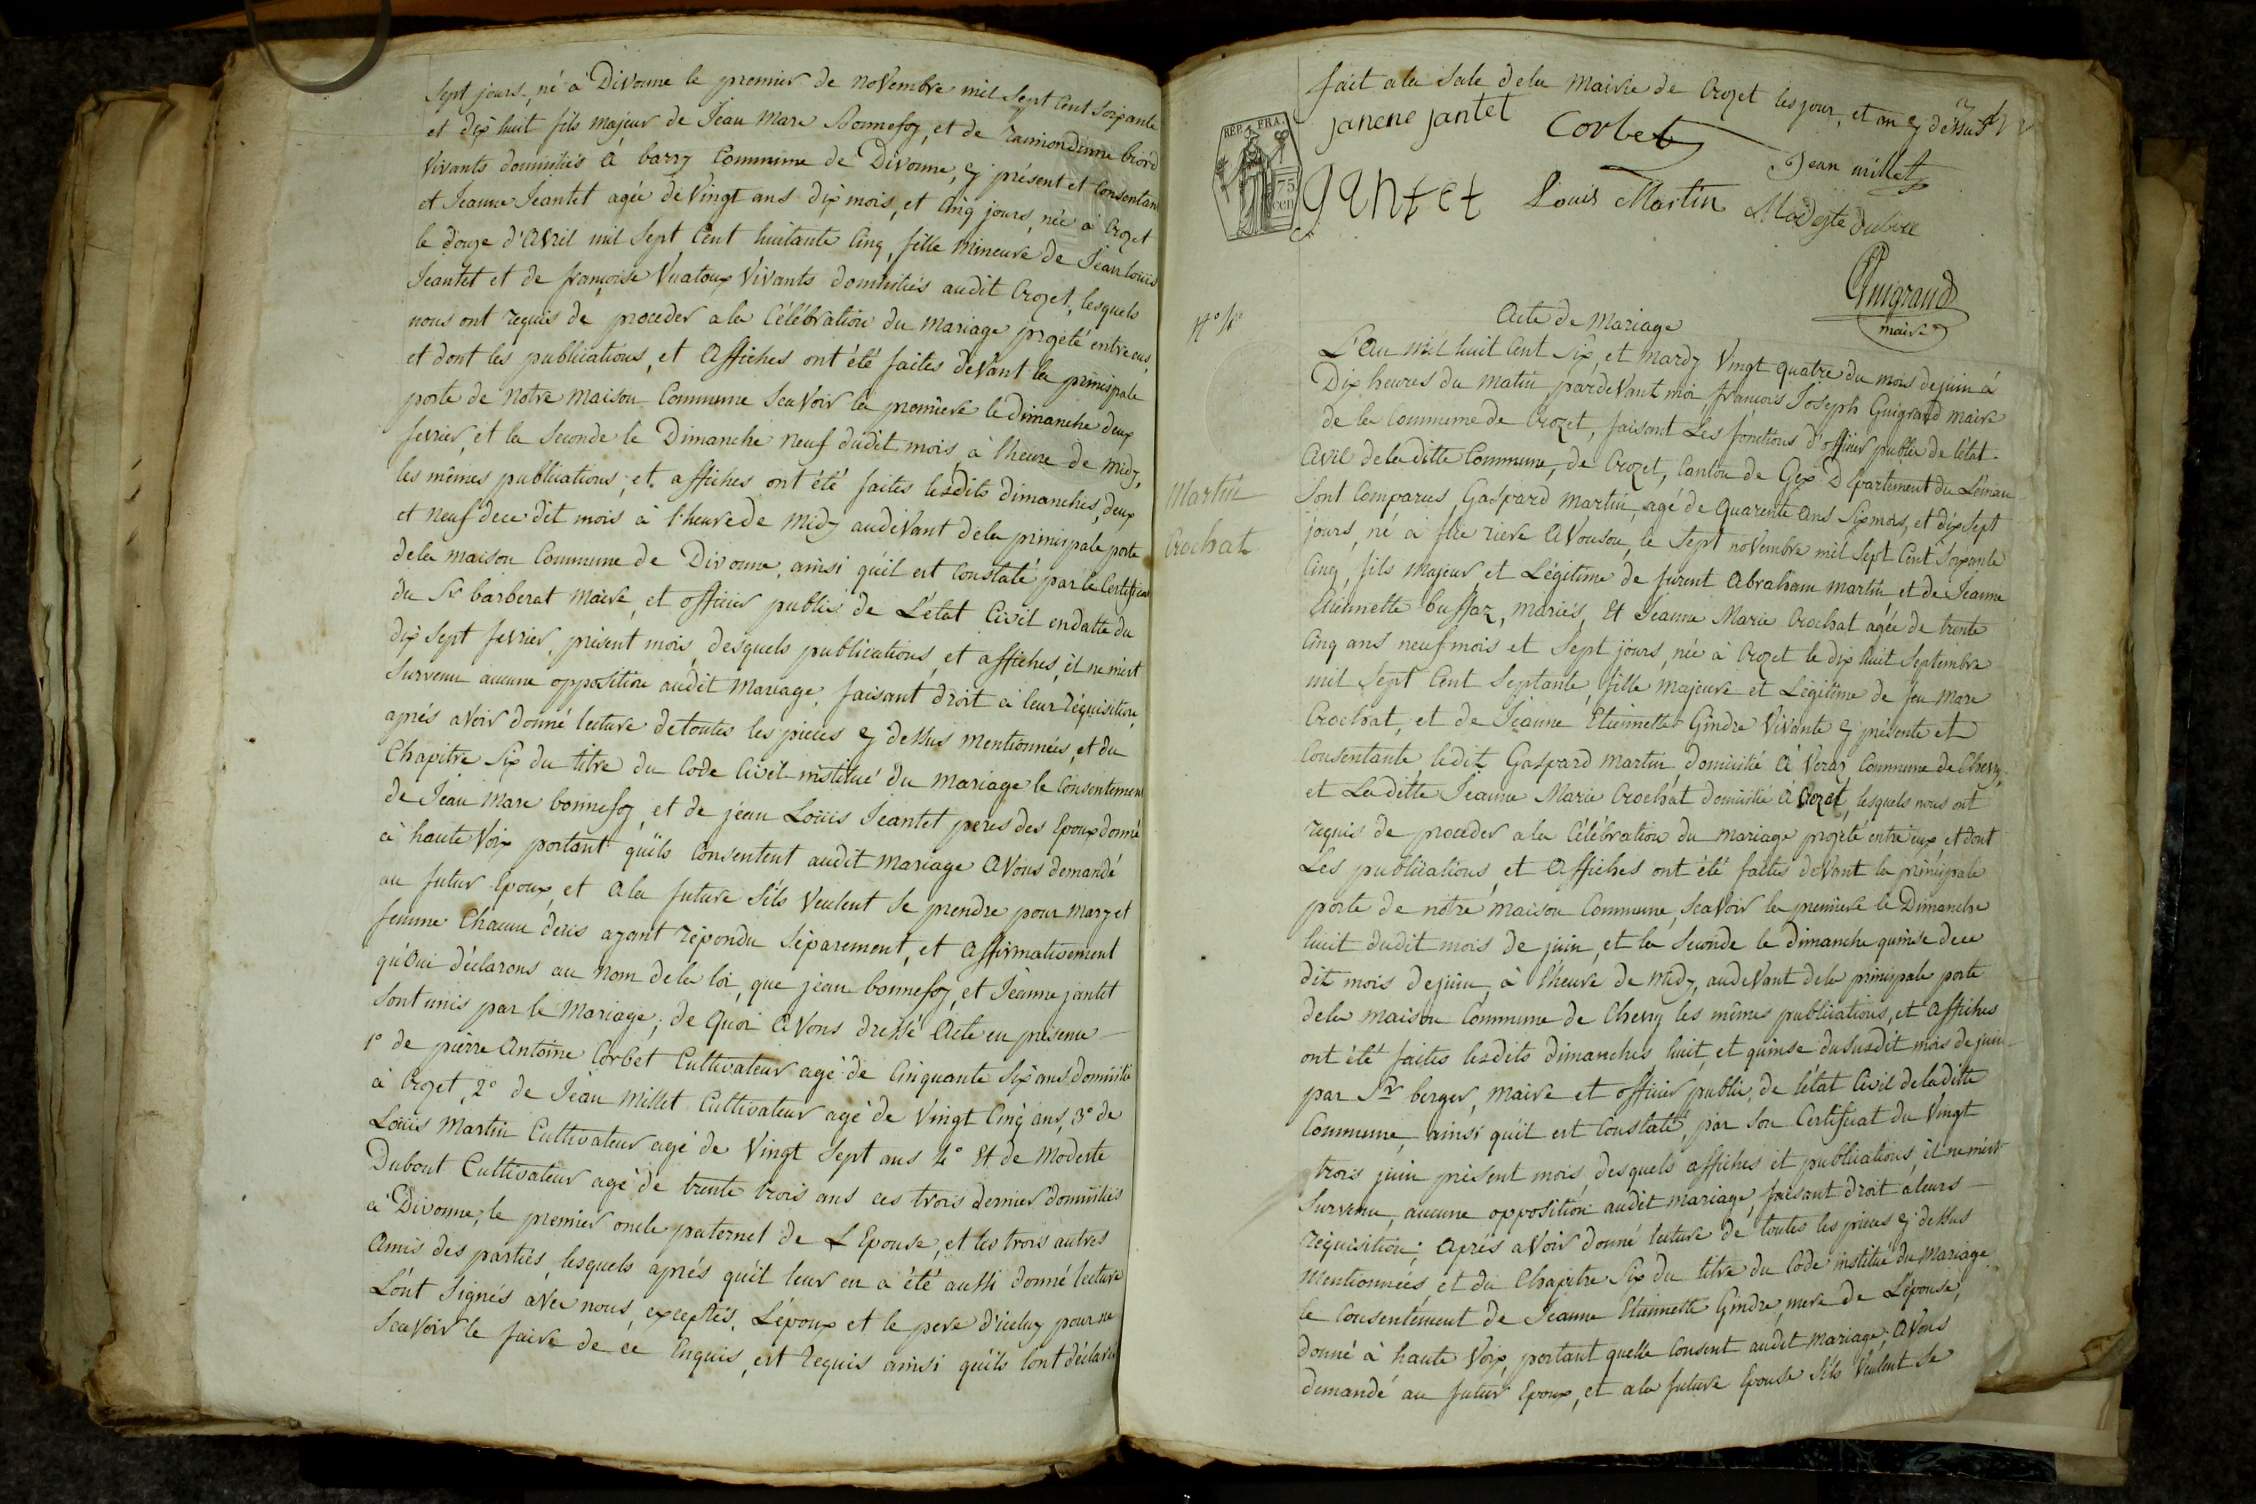 Sept jours, né à Divonne le premier de novembre mil sept Cent soixante
et dix huit fils majeur de Jean Marc Bonnefoy, et de
vivants domiciliés à Commune de Divonne, cy présent et Consentant
et Jeanne Jeantet agée de Vingt ans dix mois, et Cinq jours, née à Crozet
le douze d'Avril mil Sept Cent huitante Cinq, fille mineure de Jean louis
Jeantet et de françoise Vuatoux Vivants domiciliés audit Crozet, lesquels
nous ont requis de proceder a la Célébration du mariage projeté entre eux,
et dont les publications, et affiches ont été faites devant la principale
porte de notre maison Commune Scavoir la premiere le dimanche deux
fevrier, et la Seconde le Dimanche neuf dudit mois, à l'heure de midy,
les mêmes publications, et affiches ont été faites lesdits dimanches, deux
et neuf de ce dit mois à l'heure de midy audevant de la principale porte
de la maison Commune de Divonne, ainsi qu'il est Constaté par le Certificat
du Sr barberat maire, et officier public de L'état Civil en datte du
dix sept fevrier, présent mois, desquels publications, et affiches, il ne m'est
Survenu aucune opposition audit mariage, faisant droit à leur réquisition,
aprés avoir donné lecture de toutes les pieces cy dessus mentionnées, et du
Chapitre Six du titre du Code Civil institué du mariage le Consentement
de Jean Marc bonnefoy, et de jean Louis Jeantet peres des Epoux donné
à haute Voix portant qu'ils Consentent audit mariage avons demandé
au futur Epoux, et a la future s'ils veulent se prendre pour mary et
femme Chacun d'eux ayant répondu Séparement, et affirmativement
qu'Oui déclarons au nom de la loi, que jean bonnefoy, et Jeanne jantet
Sont unis par le mariage; de quoi avons dressé acte en présence
1° de pierre Antoine Corbet Cultivateur agé de Cinquante Six ans domicilié
à Crozet, 2° de Jean Millet Cultivateur agé de Vingt Cinq ans, 3° de
Louis Martin Cultivateur agé de Vingt Sept ans 4° Et de Modeste
Dubout Cultivateur agé de trente trois ans ces trois dernier domiciliés
à Divonne, le premier oncle paternel de L'Epouse, et les trois autres
amis des parties, lesquels aprés qu'il leur en a été aussi donné lecture
L'ont Signés avec nous, exceptés, L'époux et le pere d'iceluy pour ne
Scavoir le faire de ce Enquis, et requis ainsi qu'ils l'ont déclarés
fait a la Sale de la mairie de Crozet les jour, et an cy dessus
REP. FRA.
75
cen
janene jantet
Corbet
Jean millet
gantet
Louis Martin
Modeste
Guigrand
maire
Acte de Mariage
L'an mil huit Cent Six, et mardy Vingt quatre du mois de juin à
Dix heures du matin pardevant moi françois Joseph Guigrand maire
de la Commune de Crozet, faisant les fonctions d'officier public de l'état
Civil de la ditte Commune, de Crozet, Canton de Gex Département du Léman
Martin
Crochat
Sont Comparus, Gaspard Martin, agé de Quarente ans Six mois, et dix Sept
jours, né à le Sept novembre mil Sept Cent Soixante
Cinq, fils majeur et Légitime de furent Abraham martin et de Jeanne
Etiennette buffaz, mariés, Et Jeanne Marie Crochat agée de trente
Cinq ans neuf mois et Sept jours, née à Crozet le dix huit Septembre
mil Sept Cent Septante, fille majeure et Légitime de feu Marc
Crochat, et de Jeanne Etiennette Gindre Vivante cy présente et
Consentante ledit Gaspard martin domicilié à Veraz Commune de Chevry,
et La ditte Jeanne Marie Crochat domicilié à Crozet, lesquels nous ont
requis de proceder a la Célébration du mariage projeté entre eux, et dont
Les publications, et affiches ont été faites devant la principale
porte de notre maison Commune, Scavoir la premiere le Dimanche
huit dudit mois de juin, et la Seconde le dimanche quinse de ce
dit mois de juin, à l'heure de midy, audevant de la principale porte
de la maison Commune de Chevry les mêmes publications, et affiches
ont été faites lesdits dimanches, huit, et quinse du Susdit mois de juin
par Sr berger, maire et officier public, de l'état Civil de la ditte
Commune, ainsi qu'il est Constaté, par Son Certificat du Vingt
trois juin présent mois, desquels affiches et publications, il ne m'est
Survenu, aucune opposition audit mariage, faisant droit a leurs
réquisition; aprés avoir donné lecture de toutes les pieces cy dessus
mentionnées et du Chapitre Six du titre du Code institué du mariage
le Consentement de Jeanne Etiennette Gindre, mere de L'épouse,
donné à haute Voix, portant quelle Consent audit mariage; avons
demandé au futur Epoux, et a la future Epouse s'ils Veulent se